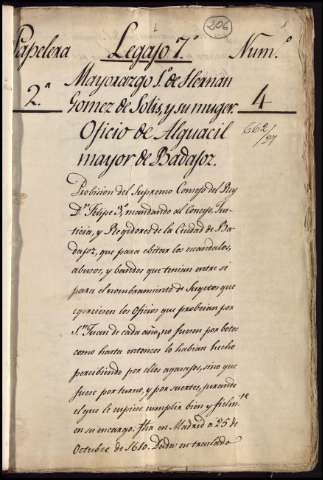 206
1
Papelera Legajo 7º Num.º
Mayorazgo 1º de Hernan
2.ª Gomez de Solis, y su muger. 4
Oficio de Alguacil 662/97
mayor de Badajoz.
Probision del Supremo Consejo del Rey
Dn. Felipe 3º, mandando al Consejo Jus-
ticia, y Regidores de la Ciudad de Ba-
dajoz, que para ebitar los escandalos,
abusos, y bandos que tenian entre si
para el nombramiento de sugetos que
egerciesen los Oficios que probeian por
Sn. Juan de cada año, no fuesen por botos
como hasta entonces lo habian hecho
percibiendo por ellos agasajos, sino que
fuese por turno, y por suertes, jurando
el que le cupiese cumplir bien y fielmte
en su encargo. fha en Madrid a 25 de
Octubre de 1610. Dada en traslado